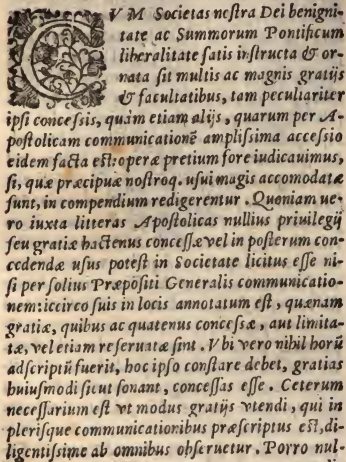 CV M Societas nestra Dei benigni-
tate ac Summorum Pontificum
liberalitate satis instructa & or-
nata sit multis ac magnis gratijs
& facultatibus, tam peculiariter
ipsi concessis, quàm etiam alijs, quarum per A-
postolicam communicationẽ amplissima accessio
eidem facta est: operæ pretium fore iudicauimus,
si, quæ præcipuæ nostroq. vsui magis accomodatæ
sunt, in compendium redigerentur. Quoniam ue-
ro iuxta litteras Apostolicas nullius priuilegij
seu gratiæ hactenus concessæ vel in posterum con-
cedendæ usus potest in Societate licitus esse ni-
si per solius Præpositi Generalis communicatio-
nem: iccirco suis in locis annotatum est, quænam
gratiæ, quibus ac quatenus concessæ, aut limita-
tæ, vel etiam reseruatæ sint. Vbi vero nihil horũ
adscriptũ fuerit, hoc ipso constare debet, gratias
huiusmodi sicut sonant, concessas esse. Ceterum
necessarium est vt modus gratijs vtendi, qui in
plerisque communicationibus præscriptus est, di-
ligentissime ab omnibus obseruetur. Porro nul-